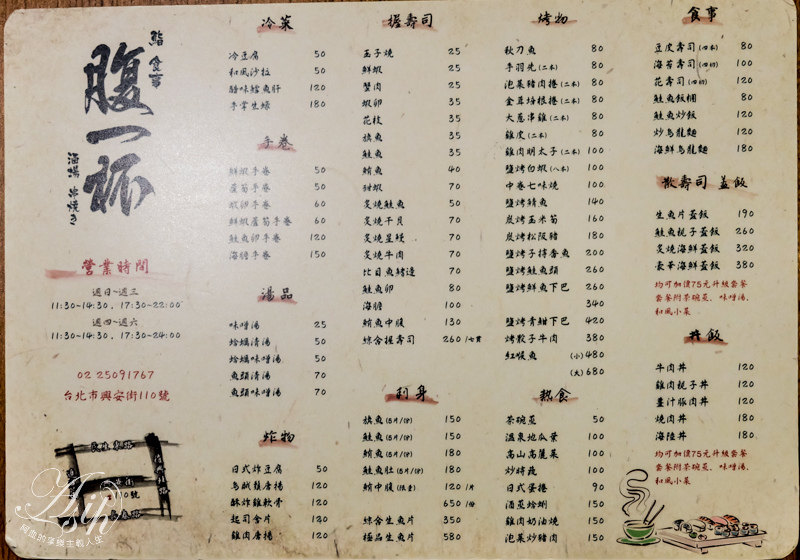 鮨 食事
腹一杯
酒場 串焼き
營業時間
週日~週三
11:30~14:30，17:30~22:00
週四~週六
11:30~14:30，17:30~24:00
02 25091767
台北市興安街110號
冷菜
冷豆腐 50
和風沙拉 50
醋味鱈魚肝 120
手掌生蠔 180
手卷
鮮蝦手卷 50
蘆筍手卷 50
蝦卵手卷 60
鮮蝦蘆筍手卷 60
鮭魚卵手卷 120
海膽手卷 150
湯品
味噌湯 25
蛤蠣清湯 50
蛤蠣味噌湯 50
魚頭清湯 70
魚頭味噌湯 70
炸物
日式炸豆腐 50
烏賊鬚唐揚 120
酥炸雞軟骨 120
起司魚片 120
雞肉唐揚 120
握壽司
玉子燒 25
鮮蝦 25
蟹肉 25
蝦卵 35
花枝 35
旗魚 35
鮭魚 35
鮪魚 40
甜蝦 70
炙燒鮭魚 50
炙燒干貝 70
炙燒星鰻 70
炙燒牛肉 70
比目魚鰭邊 70
鮭魚卵 80
海膽 100
鮪魚中腹 130
綜合握壽司 260 /七貫
刺身
旗魚(5片/份) 150
鮭魚(5片/份) 150
鮪魚(5片/份) 180
鮭魚肚(5片/份) 180
鮪中腹(限量) 120 /片
650 /份
綜合生魚片 350
極品生魚片 580
烤物
秋刀魚 80
手羽先(二本) 80
泡菜豬肉捲(二本) 80
金茸培根捲(二本) 80
大蔥串雞(二本) 80
雞皮(二本) 80
雞肉明太子(二本) 100
鹽烤白蝦(八本) 100
中卷七味燒 100
鹽烤鯖魚 140
炭烤玉米筍 160
炭烤松阪豬 180
鹽烤子持香魚 200
鹽烤鮭魚頭 260
鹽烤鮮魚下巴 260
340
鹽烤青魽下巴 420
烤骰子牛肉 380
紅喉魚 (小)480
(大)680
熱食
茶碗蒸 50
溫泉地瓜葉 100
高山高麗菜 100
炒時蔬 100
日式蛋捲 90
酒蒸蛤蜊 150
雞肉奶油燒 150
泡菜炒豬肉 150
食事
豆皮壽司(四本) 80
海苔壽司(四切) 100
花壽司(四切) 120
鮭魚飯糰 80
鮭魚炒飯 120
炒烏龍麵 120
海鮮烏龍麵 180
散壽司 蓋飯
生魚片蓋飯 190
鮭魚親子蓋飯 260
炙燒海鮮蓋飯 320
豪華海鮮蓋飯 380
均可加價75元升級套餐
套餐附茶碗蒸、味噌湯、
和風小菜
丼飯
牛肉丼 120
雞肉親子丼 120
薑汁豚肉丼 120
燒肉丼 180
海陸丼 180
均可加價75元升級套餐
套餐附茶碗蒸、味噌湯、
和風小菜
110號